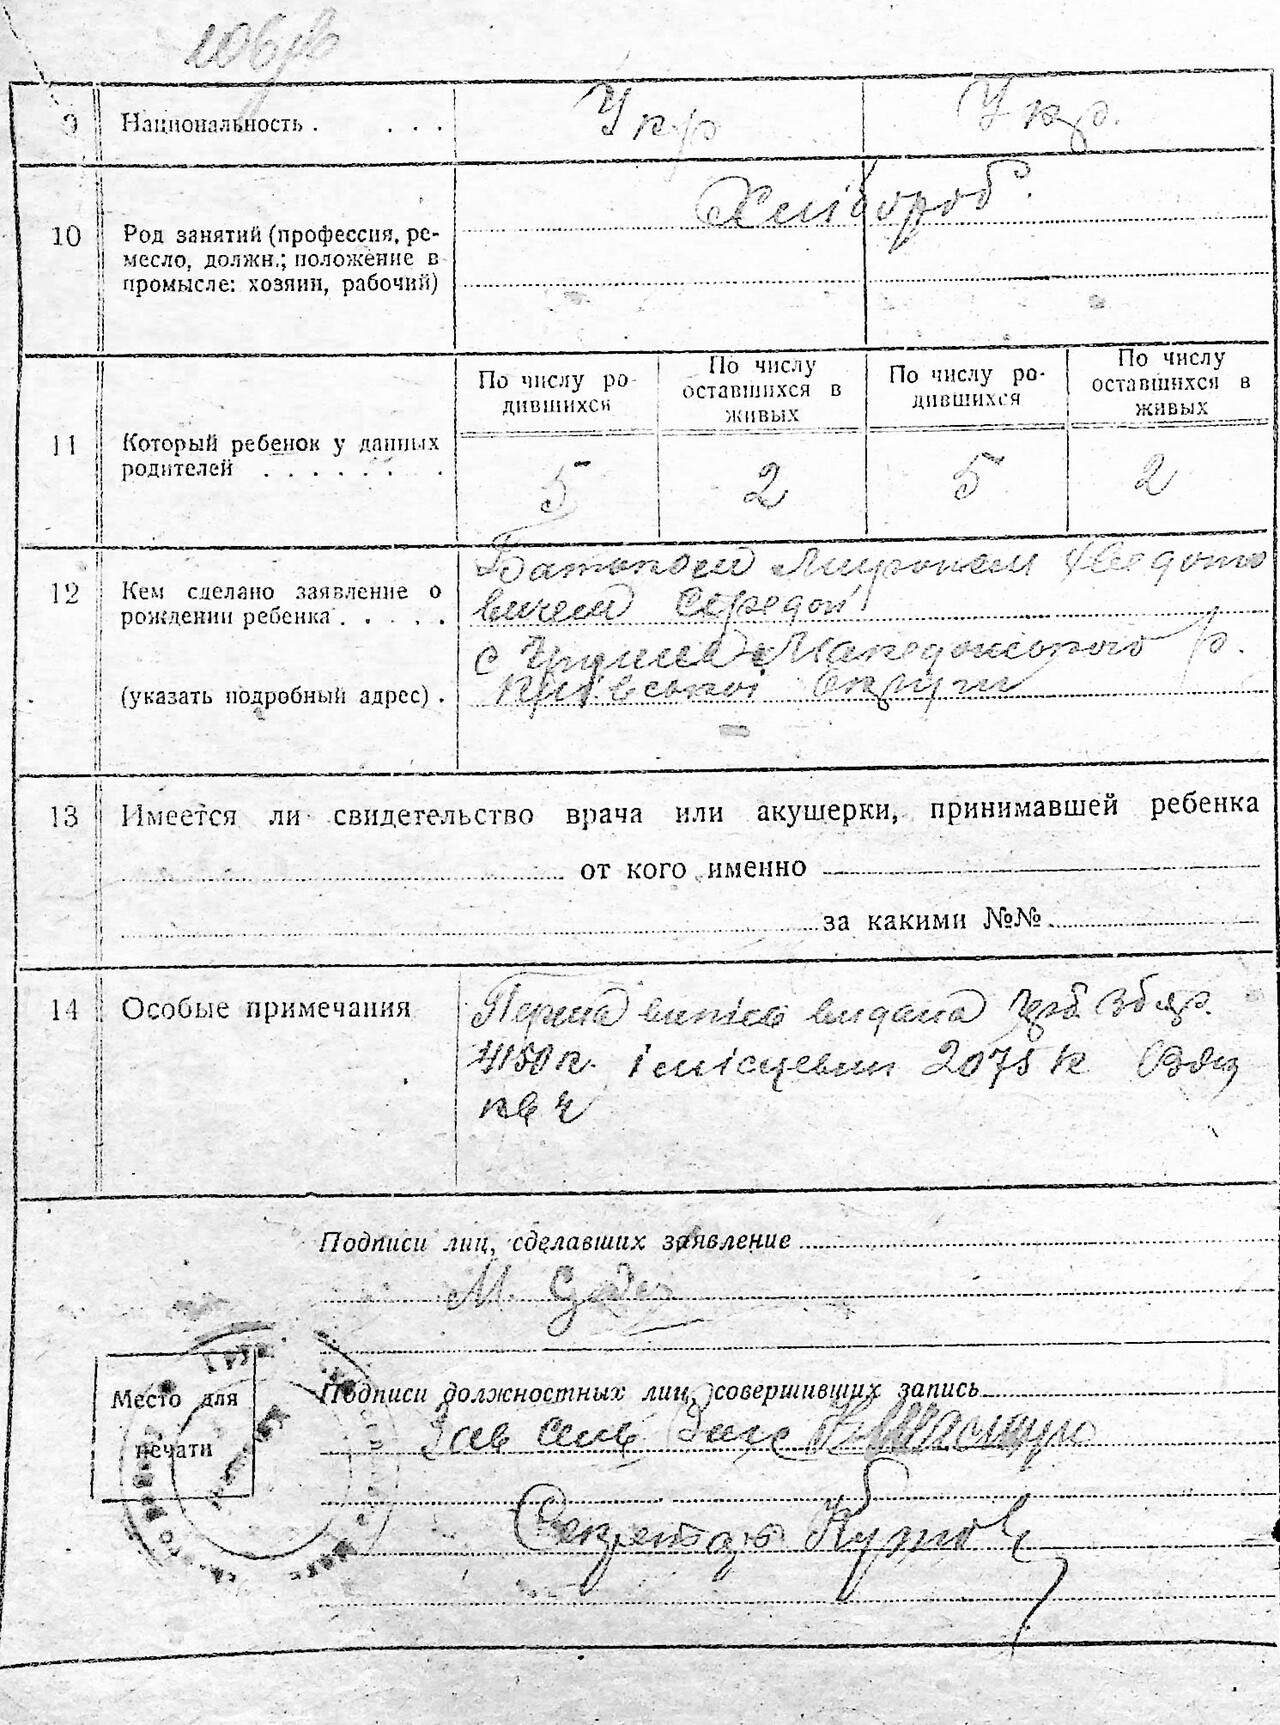 9 Национальность . . . . Укр Укр.
Хлібороб.
10 Род занятий (профессия, ре-
месло, должн.; положение в
промысле: хозяин, рабочий)
По числу ро-
дившихся
По числу
оставшихся в
живых
По числу ро-
дившихся
По числу
оставшихся в
живых
11 Который ребенок у данных
родителей . . . . . . .
5 2 5 2
Батьком Мироном Федото
12 Кем сделано заявление о
вичем Середой
рождении ребенка . . . . .
с Македонського р.
(указать подробный адрес) . Київської округи
13 Имеется ли свидетельство врача или акушерки, принимавшей ребенка
от кого именно
за какими №№
14 Особые примечания Перша випись видана збор.
4150 к. і місцевим 2075 к
кв ч
Подписи лиц, сделавших заявление
М.
Место для
печати
Подписи должностных лиц, совершивших запись
Зав
Секретарь